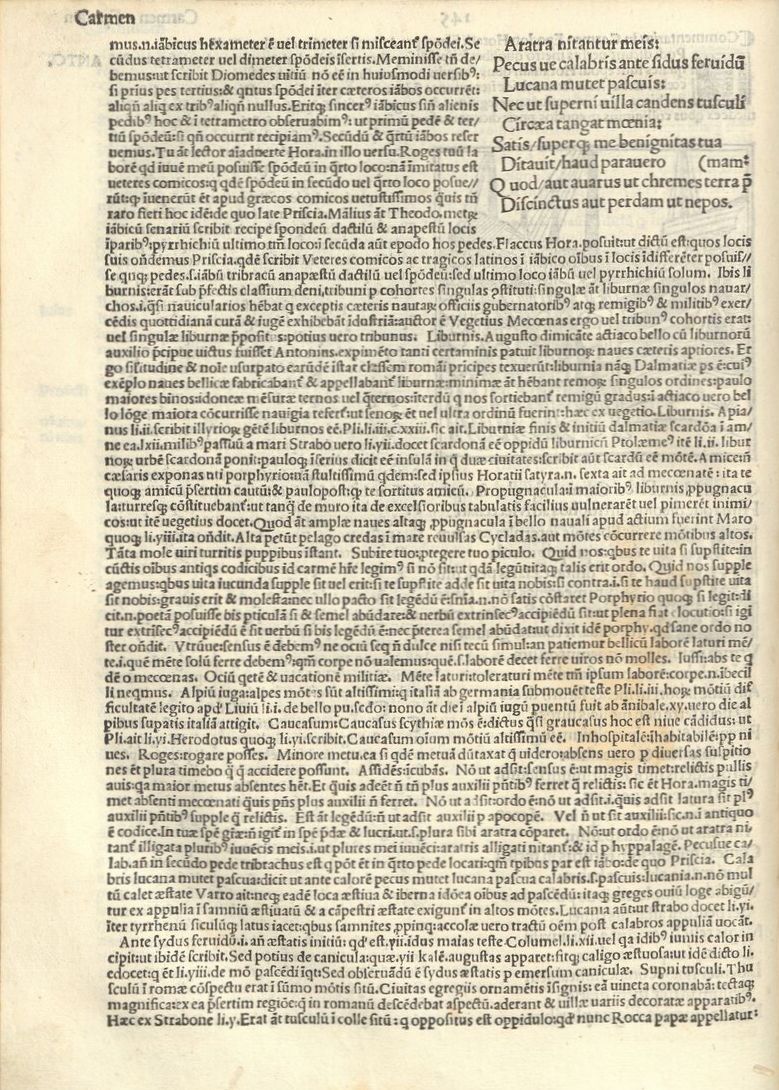 Carmen
Aratra nitantur meis:
Pecus ue calabris ante sidus feruidū
Lucana mutet pascuis:
Nec ut superni uilla candens tusculi
Circæa tangat mœnia:
Satis/superq; me benignitas tua
Ditauit/haud parauero (mam:
Quod/aut auarus ut chremes terra p̄
Discinctus aut perdam ut nepos.
mus.n.iābicus hexameter ē uel trimeter si misceant᷑ spōdei.Se
cūdus tetrameter uel dimeter spōdeis isertis.Meminisse tn̄ de/
bemus:ut scribit Diomedes uitiū nō eē in huiusmodi uersibꝰ:
si prius pes tertius:& qntus spōdei iter cæteros iābos occurrēt:
aliqn̄ aliq ex tribꝰ aliqn̄ nullus.Eritq; sincerꝰ iābicus sin̄ alienis
pedibꝰ hoc & i tetrametro obseruabimꝰ: ut primū pedē & ter/
tiū spōdeū: si qn̄ occurrit recipiamꝰ.Secūdū & q̄rtū iābos reser
uemus.Tu āt lector aīaduerte Hora.in illo uersu.Roges tuū la
borē qd iuuē meū posuisse spōdeū in q̄rto loco:nā imitatus est
ueteres comicos:q qdē spōdeū in secūdo uel q̄rto loco posue//
rūt:q; iuenerūt ēt apud græcos comicos uetustissimos q̄uis tn̄
raro fieri hoc idē: de quo late Priscia. Mālius āt Theodo.metꝝ
iābicū senariū scribit recipe spondeū dactilū & anapestū locis
īparibꝰ:pyrrhichiū ultimo tm̄ loco:i secūda aūt epodo hos pedes.Flaccus Hora.posuit:ut dictū est:quos locis
suis on̄demus Priscia.qdē scribit Veteres comicos ac tragicos latinos i iābico oībus ī locis īdifferēter posuis//
se qnq; pedes.s.iābū tribracū anapæstū dactilū uel spōdeū:sed ultimo loco iābū uel pyrrhichiū solum. Ibis li
burnis:erāt sub p̄fectis classium deni,tribuni p cohortes singulas ꝓstituti:singulæ āt liburnæ singulos nauar/
chos.i.q̄si nauicularios hēbāt q exceptis cæteris nautaꝝ officiis gubernatoribꝰ atq; remigibꝰ & militibꝰ exer/
cēdis quottidianā curā & iugē exhibebāt īdustriā:auctor ē Vegetius Mecœnas ergo uel tribunꝰ cohortis erat:
uel singulæ liburnæ p̄positꝰ:potius uero tribunus. Liburnis.Augusto dimicāte actiaco bello cū liburnorū
auxilio p̄cipue uictus fuisset Antonius.expimēto tanti certaminis patuit liburnoꝝ naues cæteris aptiores. Er
go sīlitudine & noīe usurpato earūdē īstar classem romāi prīcipes texuerūt:liburnia nāq; Dalmatiæ ps ē:cuiꝰ
exēplo naues bellicæ fabricabant᷑ & appellabant᷑ liburnæ:minimæ āt hēbant remoꝝ singulos ordines:paulo
maiores binos:idoneæ mēsuræ ternos uel q̄ternos:iterdū q nos sortiebant᷑ remigū gradus:i actiaco uero bel
lo lōge maiora cōcurrisse nauigia refert᷑:ut senoꝝ ēt uel ultra ordinū fuerint:hæc ex uegetio.Liburnis. Apia/
nus li.ii.scribit illyrioꝝ gētē liburnos eē.Pli.li.iii.c.xxiii.sic ait.Liburniæ finis & initiū dalmatiæ scardōa ī am/
ne ea.lxii.milibꝰ passuū a mari Strabo uero li.yii.docet scardonā eē oppidū liburnicū Ptolæmeꝰ itē li.ii. libur
noꝝ urbē scardonā ponit:pauloq; īserius dicit eē insulā in q̄ duæ ciuitates:scribit aūt scardū eē mōtē. Amice:m̄
cæsaris exponas nti porphyrio:nā stultissimū qdem:sed ipsius Horatii satyra.n. sexta ait ad mecœnatē : ita te
quoq; amicū p̄sertim cautū:& paulopost:q; te sortitus amicū. Propugnacula:i maioribꝰ liburnis ꝓpugnacu
la:turresq; cōstituebant᷑:ut tanq̄ de muro ita de excelsioribus tabulatis facilius uulnerarēt uel pimerēt inimi/
cos:ut itē uegetius docet.Quod āt amplæ naues altaq; ꝓpugnacula i bello nauali apud actium fuerint Maro
quoq; li.yiii.ita on̄dit.Alta petūt pelago credas ī mare reuulsas Cycladas.aut mōtes cōcurrere mōtibus altos.
Tāta mole uiri turritis puppibus īstant. Subire tuo:ꝓtegere tuo piculo. Quid nos:qbus te uita si supstite:in
cūctis oībus antiqs codicibus id carmē hr̄e legimꝰ si nō sit: ut qdā legūt:itaq; talis erit ordo. Quid nos supple
agemus:qbus uita iucunda supple sit uel erit:si te supstite adde sit uita nobis:si contra.i.si te haud supstite uita
sit nobis:grauis erit & molesta:nec ullo pacto sit legēdū ē:sn̄ia.n.nō satis cōstaret Porphyrio quoq; si legit:di
cit.n.poetā posuisse bis pticulā si & semel abūdare:& uerbū extrinsecꝰ accipiēdū sit:ut plena fiat elocutio:si igi
tur extrisecꝰ accipiēdū ē sit uerbū si bis legēdū ē:nec p̄terea semel abūdat:ut dixit idē porphy.qd sane ordo no
ster on̄dit. Vtrūue:sensus ē debemꝰ ne ociū seq n̄ dulce nisi tecū simul:an patiemur bellicū laborē laturi mē/
te.i.quē mēte solū ferre debemꝰ:qm̄ corpe nō ualemus:quē.s.laborē decet ferre uiros nō molles. Iussi:abs te q
dē o mecœnas. Ociū qetē & uacationē militiæ. Mēte laturi:toleraturi mēte tm̄ ipsum laborē:corpe.n.ībecil
li neqmus. Alpiū iuga:alpes mōtes sūt altissimi:q italiā ab germania submouēt teste Pli.li.iii.hoꝝ mōtiū dif
ficultatē legito apd᷑ Liuiū li.i. de bello pu.sedo: nono āt die ī alpiū iugū puentū fuit ab ānibale.xy.uero die al
pibus supatis italiā attigit. Caucasum:Caucasus scythiæ mōs ē:dictus q̄si graucasus hoc est niue cādidus: ut
Pli.ait li.yi.Herodotus quoq; li.yi.scribit.Caucasum oīum mōtiū altissimū eē. Inhospitalē:īhabitabilē:ꝓp ni
ues. Roges:rogare posses. Minore metu.ea si qdē metuā dūtaxat q̄ uidero:absens uero p diuersas suspitio
nes ēt plura timebo q̄ q̄ accidere possunt. Affidēs:īcubās. Nō ut adsit:sensus ē:ut magis timet:relictis pullis
auis:qa maior metus absentes hēt.Et quis adeēt n̄ tm̄ plus auxilii pn̄tibꝰ ferret q̄ relictis: sic ēt Hora.magis ti/
met absenti mecœnati quis pn̄s plus auxilii n̄ ferret. Nō ut adsit:ordo ē:nō ut adsit.i.quis adsit latura sit plꝰ
auxilii pn̄tibꝰ supple q̄ relictis. Est āt legēdū:n̄ ut adsūt auxilii p apocopē. Vel n̄ ut sit auxilii:sic.n.i antiquo
ē codice.In tuæ spē giæ:n̄ igit᷑ in spē p̄dæ & lucri.ut.s.plura sibi aratra cōparet. Nō:ut ordo ē:nō ut aratra ni/
tant᷑ illigata pluribꝰ iuuēcis meis.i.ut plures mei iuuēci:aratris alligati nitant᷑:& id p hyppalagē. Pecusue ca/
lab.an̄ in secūdo pede tribrachus est q pōt ēt in q̄rto pede locari:qm̄ tpibus par est iābo:de quo Priscia. Cala
bris lucana mutet pascua:dicit ut ante calorē pecus mutet lucana pascua calabris.s.pascuis:lucania.n.nō mul
tū calet æstate Varro ait:neq; eadē loca æstiua & iberna idōea oībus ad pascēdū:itaq; greges ouiū lōge abigū/
tur ex appulia i samniū æstiuatū & a cāpestri æstate exigunt᷑ in altos mōtes.Lucania aūt:ut strabo docet li.yi.
īter tyrrhenū siculūq; latus iacet:qbus samnites ꝓpinq:accolæ uero tractū oēm post calabros appuliā uocāt.
Ante sydus feruidū.i.an̄ æstatis initiū: qd᷑ est.yii.idus maias teste Columel.li.xii.uel qa idibꝰ iuniis calor in
cipit:ut ibidē scribit.Sed potius de canicula:quæ.yii kalē.augustas apparet:fitq; caligo æstuosa:ut idē dicto li.
edocet:q ēt li.yiii.de mō pascēdi īqt:Sed obseruādū ē sydus æstatis p emersum caniculæ. Supni tusculi.Thu
sculū i romæ cōspectu erat i sūmo mōtis sitū.Ciuitas egregiis ornamētis īsignis: eā uineta coronabā: tectaq;
magnifica:ex ea p̄sertim regiōe:q in romanū descēdebat aspectū.aderant & uillæ uariis decoratæ apparatibꝰ.
Hæc ex Strabone li.y.Erat āt tusculū i colle sitū: q oppositus est oppidulo:qd᷑ nunc Rocca papæ appellatur: